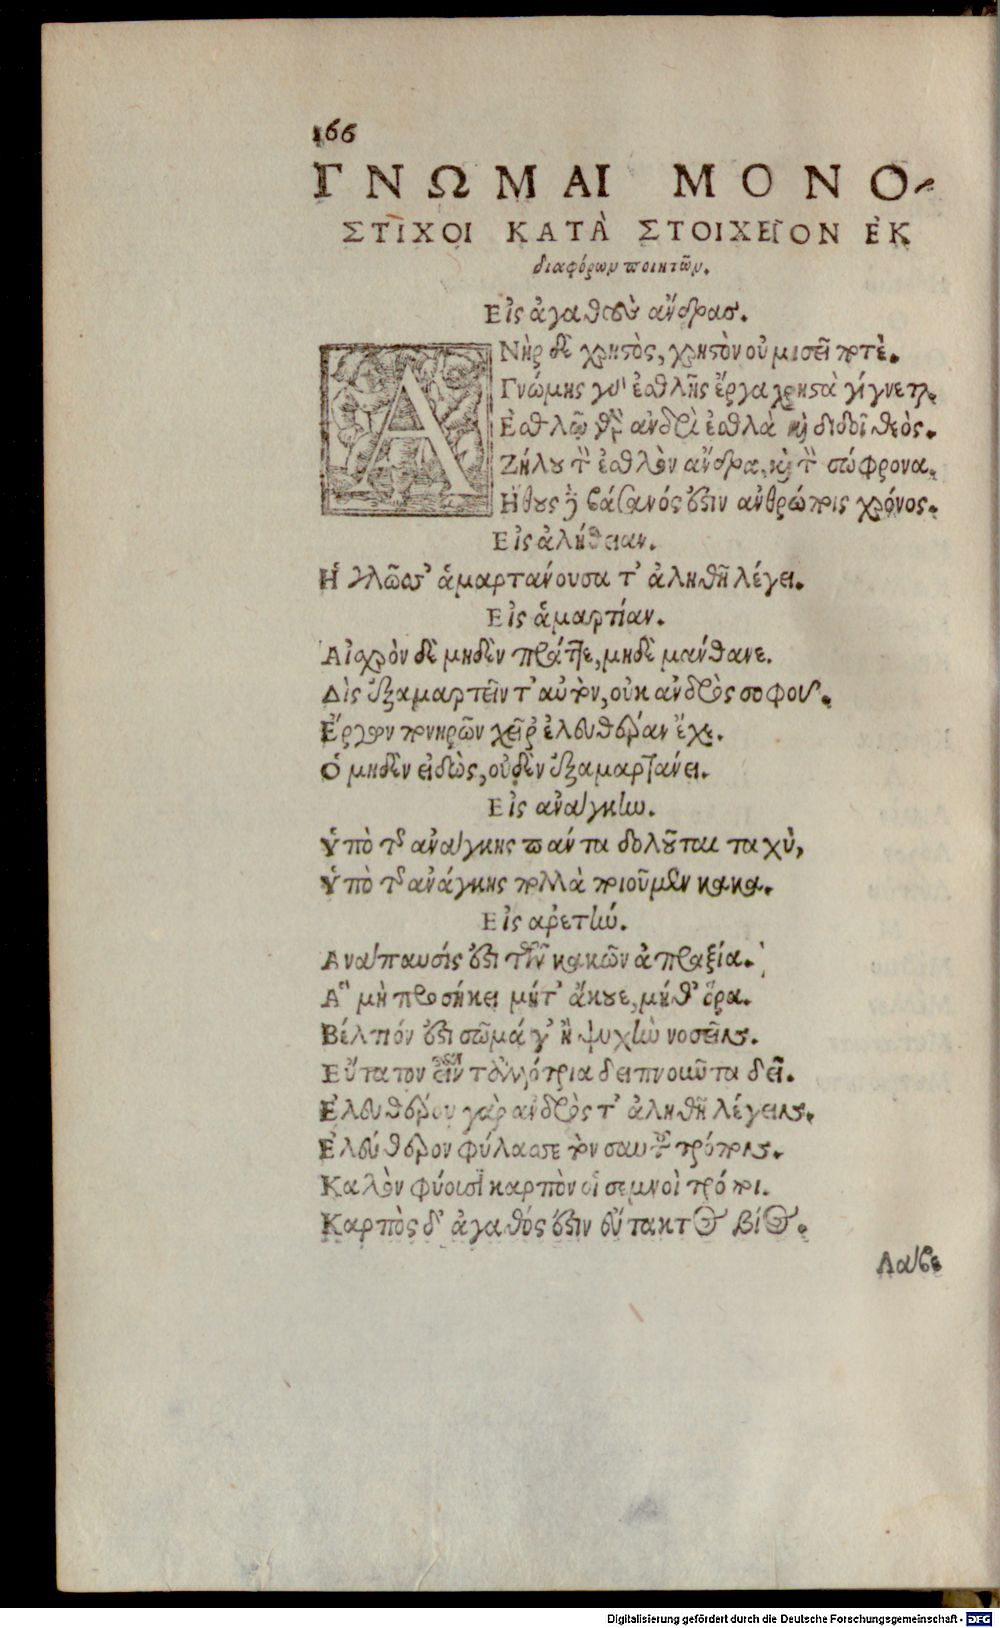 166
ΓΝΩΜΑΙ ΜΟΝΟ-
ΣΤΙΧΟΙ ΚΑΤᾺ ΣΤΟΙΧΕΙ͂ΟΝ ἘΚ
διαφόρων ποιητῶν.
Εἰς ἀγαθοὺς ἄνδρας.
ΑΝὴρ δὲ χρηστὸς, χρηστὸν οὐ μισεῖ ποτὲ.
Γνώμης γὰρ ἐσθλῆς ἔργα χρηστὰ γίγνεται.
Ἐσθλῷ γὰρ ἀνδρὶ ἐσθλὰ καὶ διδοῖ θεὸς.
Ζήλου τὸν ἐσθλὸν ἄνδρα, καὶ τὸν σώφρονα.
Ἤθους δὲ βάσανός ἐστιν ἀνθρώποις χρόνος.
Εἰς ἀλήθειαν.
Ἡ γλῶσσ' ἁμαρτάνουσα τ' ἀληθῆ λέγει.
Εἰς ἁμαρτίαν.
Αἰσχρὸν δὲ μηδὲν πράττε, μηδὲ μάνθανε.
Δὶς ἐξαμαρτεῖν τ' αὐτὸν, οὐκ ἀνδρὸς σοφοῦ.
Ἔργων πονηρῶν χεῖρ' ἐλευθέραν ἔχε.
Ὁ μηδὲν εἰδὼς, οὐδὲν ἐξαμαρτάνει.
Εἰς ἀνάγκην.
Ὑπὸ τῆς ἀνάγκης πάντα δολοῦται ταχὺ,
Ὑπὸ τῆς ἀνάγκης πολλὰ ποιοῦμεν κακα.
Εἰς ἀρετήν.
Ανάπαυσίς ἐστι τῶν κακῶν ἀπραξία.
Ἃ μὴ προσήκει μήτ' ἄκουε, μήθ' ὅρα.
Βέλτιόν ἐστι σῶμά γ' ἢ ψυχὴν νοσεῖν.
Ἐλευθέρου γὰρ ἀνδρὸς τ' ἀληθῆ λέγειν.
Ἐλεύθερον φύλασσε τὸν σαυτοῦ τρόπον.
Καλὸν φύουσι καρπὸν οἱ σεμνοὶ τρόποι.
Καρπὸς δ' ἀγαθός ἐστιν εὔτακτος βίος.
Λάβε
Digitalisierung gefördert durch die Deutsche Forschungsgemeinschaft - DFG